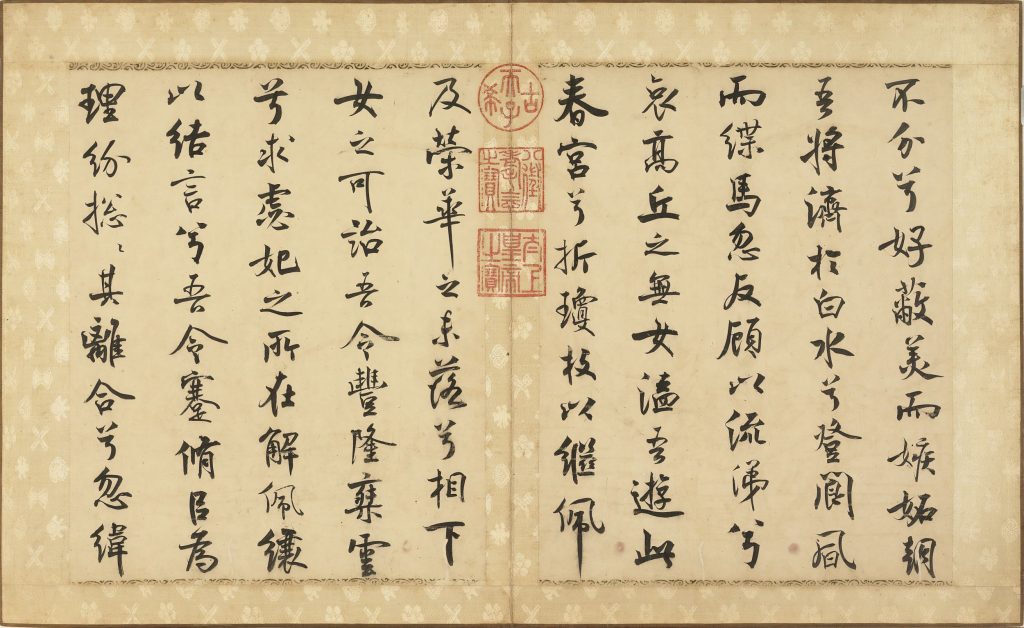 不分兮好蔽美而嫉妬朝
吾將濟於白水兮登閬風
而緤馬忽反顧以流涕兮
哀高丘之無女溘吾遊此
春宮兮折瓊枝以繼佩
古希天子
八徵耄念之寶
太上皇帝之寶
及榮華之未落兮相下
女之可詒吾令豐隆椉雲
兮求虙妃之所在解佩纕
以結言兮吾令蹇脩㠯為
理紛揔〻其離合兮忽緯